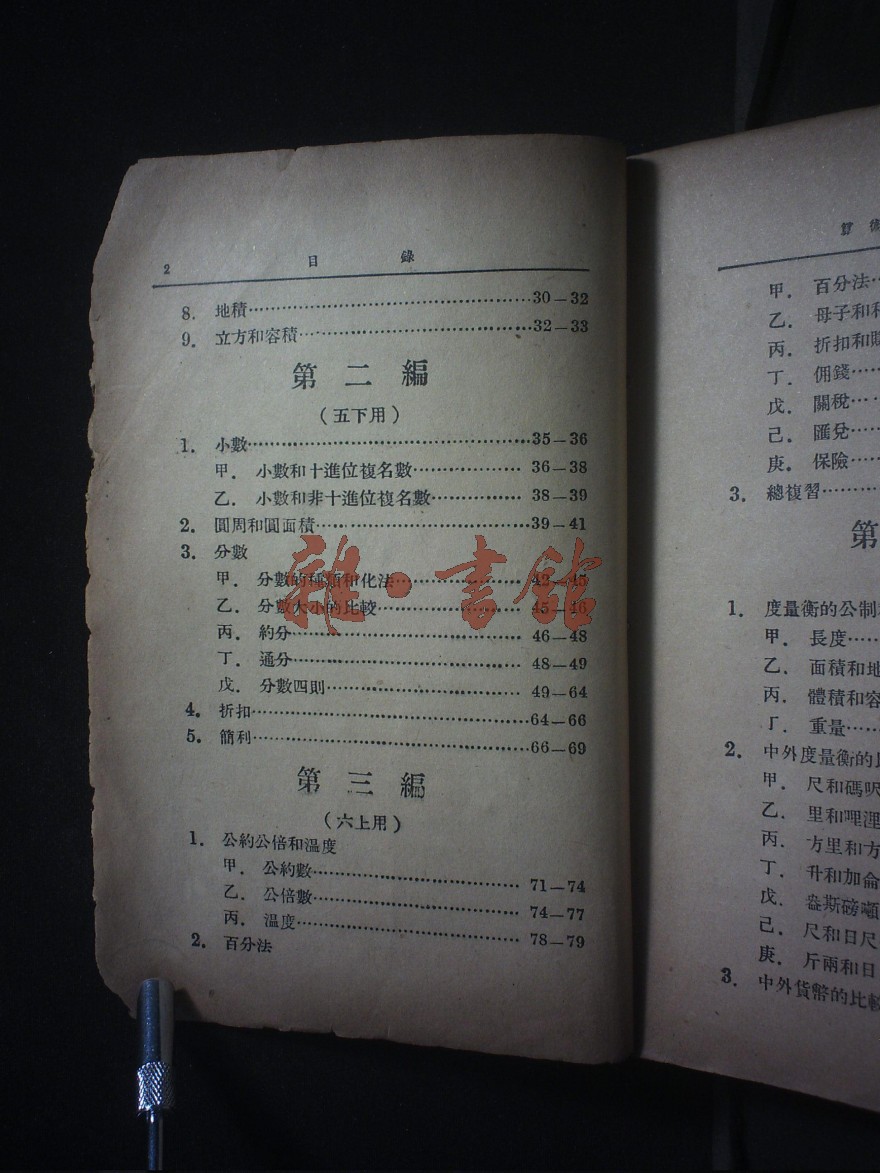 2 目 錄
8. 地積……30—32
9. 立方和容積……32—33
第 二 編
(五下用)
1. 小數……35—36
甲. 小數和十進位複名數……36—38
乙. 小數和非十進位複名數……38—39
2. 圓周和圓面積……39—41
3. 分數
甲. 分數的種類和化法……42—45
乙. 分數大小的比較……45—46
丙. 約分……46—48
丁. 通分……48—49
戊. 分數四則……49—64
4. 折扣……64—66
5. 簡利……66—69
第 三 編
(六上用)
1. 公約公倍和溫度
甲. 公約數……71—74
乙. 公倍數……74—77
丙. 溫度……78—79
2. 百分法
雜·書館
算 術
甲. 百分法…
乙. 母子和
丙. 折扣和
丁. 佣錢……
戊. 關稅…
己. 匯兌……
庚. 保險……
3. 總複習……
第
1. 度量衡的公制
甲. 長度……
乙. 面積和地
丙. 體積和容
丁. 重量……
2. 中外度量衡的
甲. 尺和碼呎
乙. 里和哩浬
丙. 方里和方
丁. 升和加侖
戊. 盎斯磅噸
己. 尺和日尺
庚. 斤兩和日
3. 中外貨幣的比較